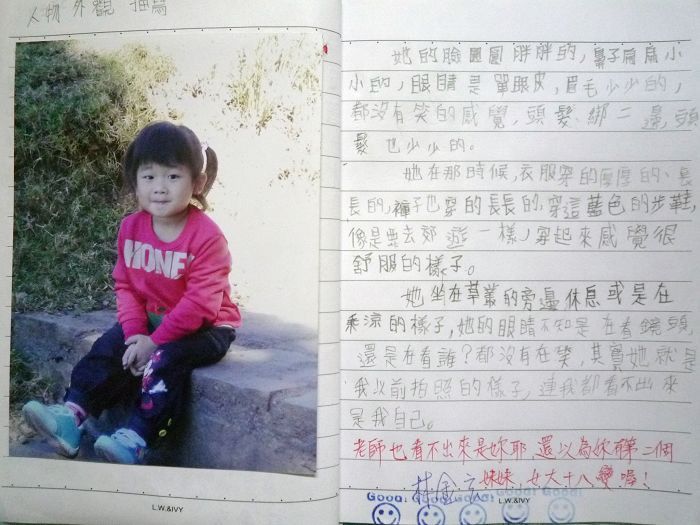 人物外觀描寫
MONE
L.W.&IVY
她的臉圓圓胖胖的,鼻子扁扁小
小的,眼睛是單眼皮,眉毛少少的,
都沒有笑的感覺,頭髮綁二邊,頭
髮也少少的。
她在那時候,衣服穿的厚厚的、長
長的,褲子也穿的長長的,穿這藍色的步鞋,
像是要去郊遊一樣,穿起來感覺很
舒服的樣子。
她坐在草叢的旁邊休息或是在
乘涼的樣子,她的眼睛不知是在看鏡頭
還是在看誰?都沒有在笑,其實她就是
我以前拍照的樣子,連我都看不出來
是我自己。
老師也看不出來是妳耶,還以為妳有第二個
妹妹,女大十八變喔!
Good! Good! Good! Good! Good!
L.W.&IVY